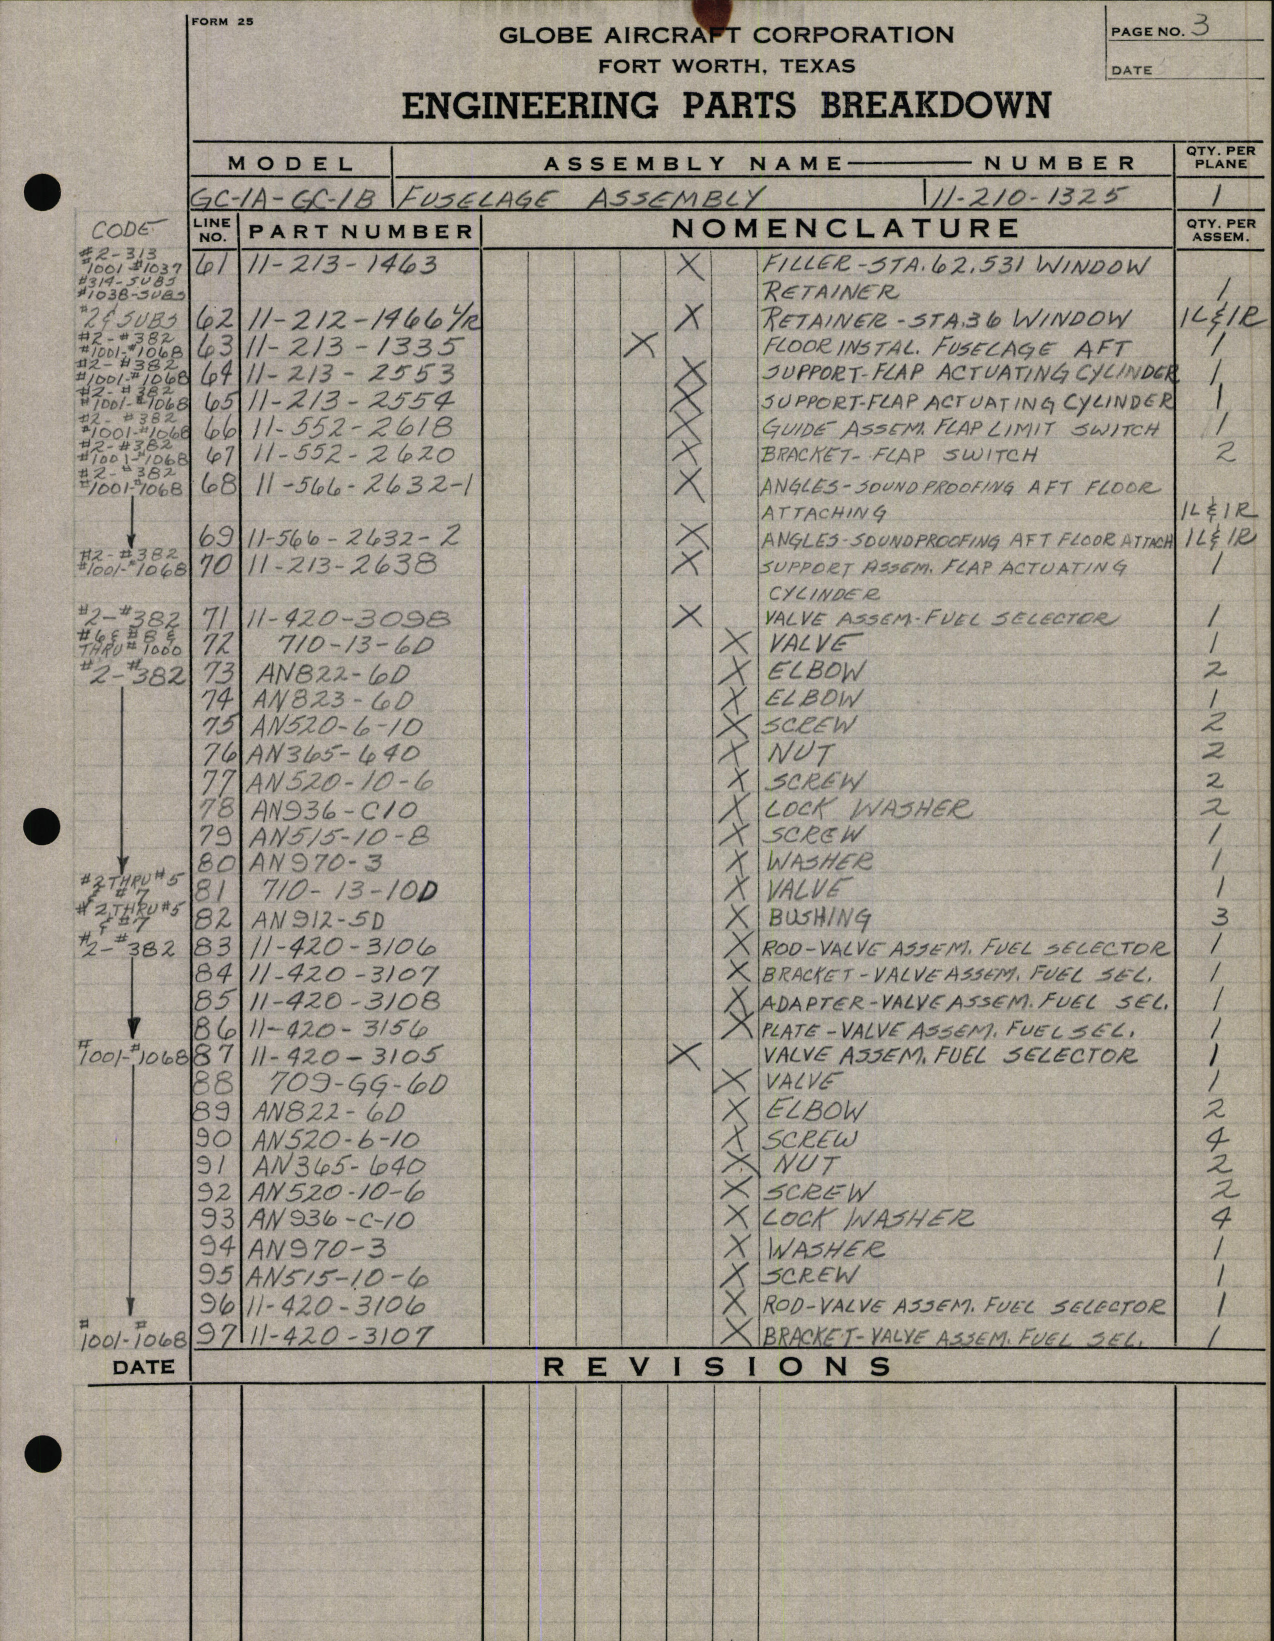 FORM 25
GLOBE AIRCRAFT CORPORATION
FORT WORTH, TEXAS
ENGINEERING PARTS BREAKDOWN
PAGE NO. 3
DATE
MODEL ASSEMBLY NAME — NUMBER QTY. PER PLANE
GC-1A-GC-1B FUSELAGE ASSEMBLY 11-210-1325 1
CODE LINE NO. PART NUMBER NOMENCLATURE QTY. PER ASSEM.
#2-313 #1001-#1037 #314-SUBS #1038-SUBS 61 11-213-1463 X FILLER-STA. 62.531 WINDOW
RETAINER 1
#2 & SUBS 62 11-212-1466 L/R X RETAINER-STA.36 WINDOW 1L&1R
#2-#382 #1001-#1068 63 11-213-1335 X FLOOR INSTAL. FUSELAGE AFT 1
#2-#382 #1001-#1068 64 11-213-2553 X SUPPORT-FLAP ACTUATING CYLINDER 1
#2-#382 #1001-#1068 65 11-213-2554 X SUPPORT-FLAP ACTUATING CYLINDER 1
#2-#382 #1001-#1068 66 11-552-2618 X GUIDE ASSEM. FLAP LIMIT SWITCH 1
#2-#382 #1001-#1068 67 11-552-2620 X BRACKET-FLAP SWITCH 2
#2-#382 #1001-#1068 68 11-566-2632-1 X ANGLES-SOUNDPROOFING AFT FLOOR
ATTACHING 1L&1R
69 11-566-2632-2 X ANGLES-SOUNDPROOFING AFT FLOOR ATTACH 1L&1R
#2-#382 #1001-#1068 70 11-213-2638 X SUPPORT ASSEM. FLAP ACTUATING 1
CYLINDER
#2-#382 71 11-420-3098 X VALVE ASSEM-FUEL SELECTOR 1
#6 & #8 & THRU #1000 72 710-13-6D X VALVE 1
#2-#382 73 AN822-6D X ELBOW 2
74 AN823-6D X ELBOW 1
75 AN520-6-10 X SCREW 2
76 AN365-640 X NUT 2
77 AN520-10-6 X SCREW 2
78 AN936-C10 X LOCK WASHER 2
79 AN515-10-8 X SCREW 1
80 AN970-3 X WASHER 1
#2 THRU #5 & #7 81 710-13-10D X VALVE 1
#2 THRU #5 & #7 82 AN912-5D X BUSHING 3
#2-#382 83 11-420-3106 X ROD-VALVE ASSEM. FUEL SELECTOR 1
84 11-420-3107 X BRACKET-VALVE ASSEM. FUEL SEL. 1
85 11-420-3108 X ADAPTER-VALVE ASSEM. FUEL SEL. 1
86 11-420-3156 X PLATE-VALVE ASSEM. FUEL SEL. 1
#1001-#1068 87 11-420-3105 X VALVE ASSEM. FUEL SELECTOR 1
88 709-GG-6D X VALVE 1
89 AN822-6D X ELBOW 2
90 AN520-6-10 X SCREW 4
91 AN365-640 X NUT 2
92 AN520-10-6 X SCREW 2
93 AN936-C-10 X LOCK WASHER 4
94 AN970-3 X WASHER 1
95 AN515-10-6 X SCREW 1
96 11-420-3106 X ROD-VALVE ASSEM. FUEL SELECTOR 1
#1001-#1068 97 11-420-3107 X BRACKET-VALVE ASSEM. FUEL SEL. 1
DATE REVISIONS